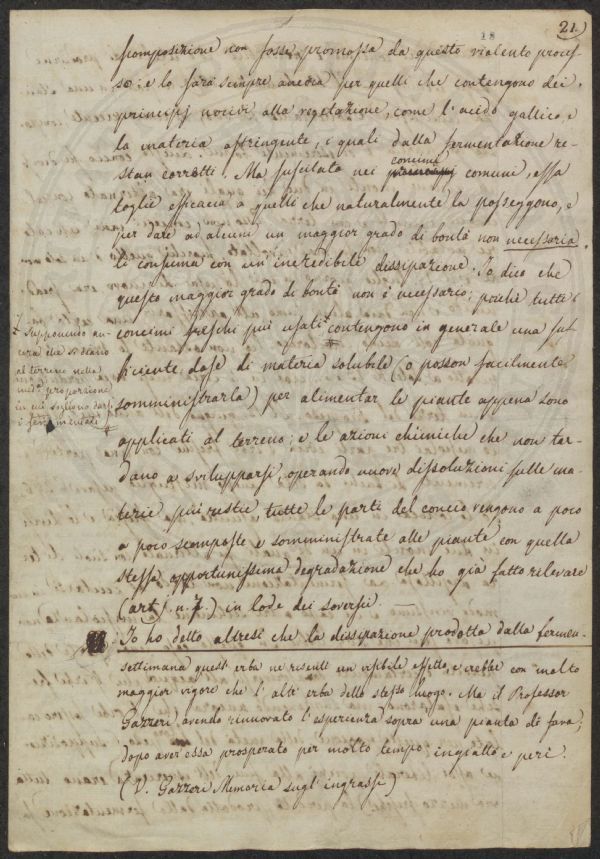 21.
18
scomposizione non fosse promossa da questo violento proces-
so: e lo sarà sempre ancora per quelli che contengono dei
principj nocivi alla vegetazione, come l'acido gallico, e
la materia astringente, i quali dalla fermentazione re-
stan corretti. Ma suscitata nei concimi comuni, essa
toglie efficacia a quelli che naturalmente la posseggono, e
per dare ad alcuni un maggior grado di bontà non necessaria
li consuma con un'incredibile dissipazione. Io dico che
questo maggior grado di bontà non è necessario; poichè tutti i
concimi freschi più usati contengono in generale una suf-
ficiente dose di materia solubile (o posson facilmente
somministrarla) per alimentar le piante appena sono
applicati al terreno; e le azioni chimiche che non tar-
dano a svilupparsi, operando nuove dissoluzioni sulle ma-
terie più restie, tutte le parti del concio vengono a poco
a poco scomposte e somministrate alle piante con quella
stessa opportunissima degradazione che ho già fatto rilevare
(art. n. 7.) in lode dei soversci. —
Supponendo an-
cora che si diano
al terreno nella
proporzione
in cui soglion darsi
i fermentati
Io ho detto altresì che la dissipazione prodotta dalla fermen-
settimana quest'erba ne risentì un visibile effetto, e crebbe con molto
maggior vigore che l'altr'erba dello stesso luogo. Ma il Professor
Gazzeri avendo rinnovato l'esperienza sopra una pianta di fava,
dopo aver essa prosperato per molto tempo, ingiallò e perì.
(V. Gazzeri Memoria sugl'ingrassi)